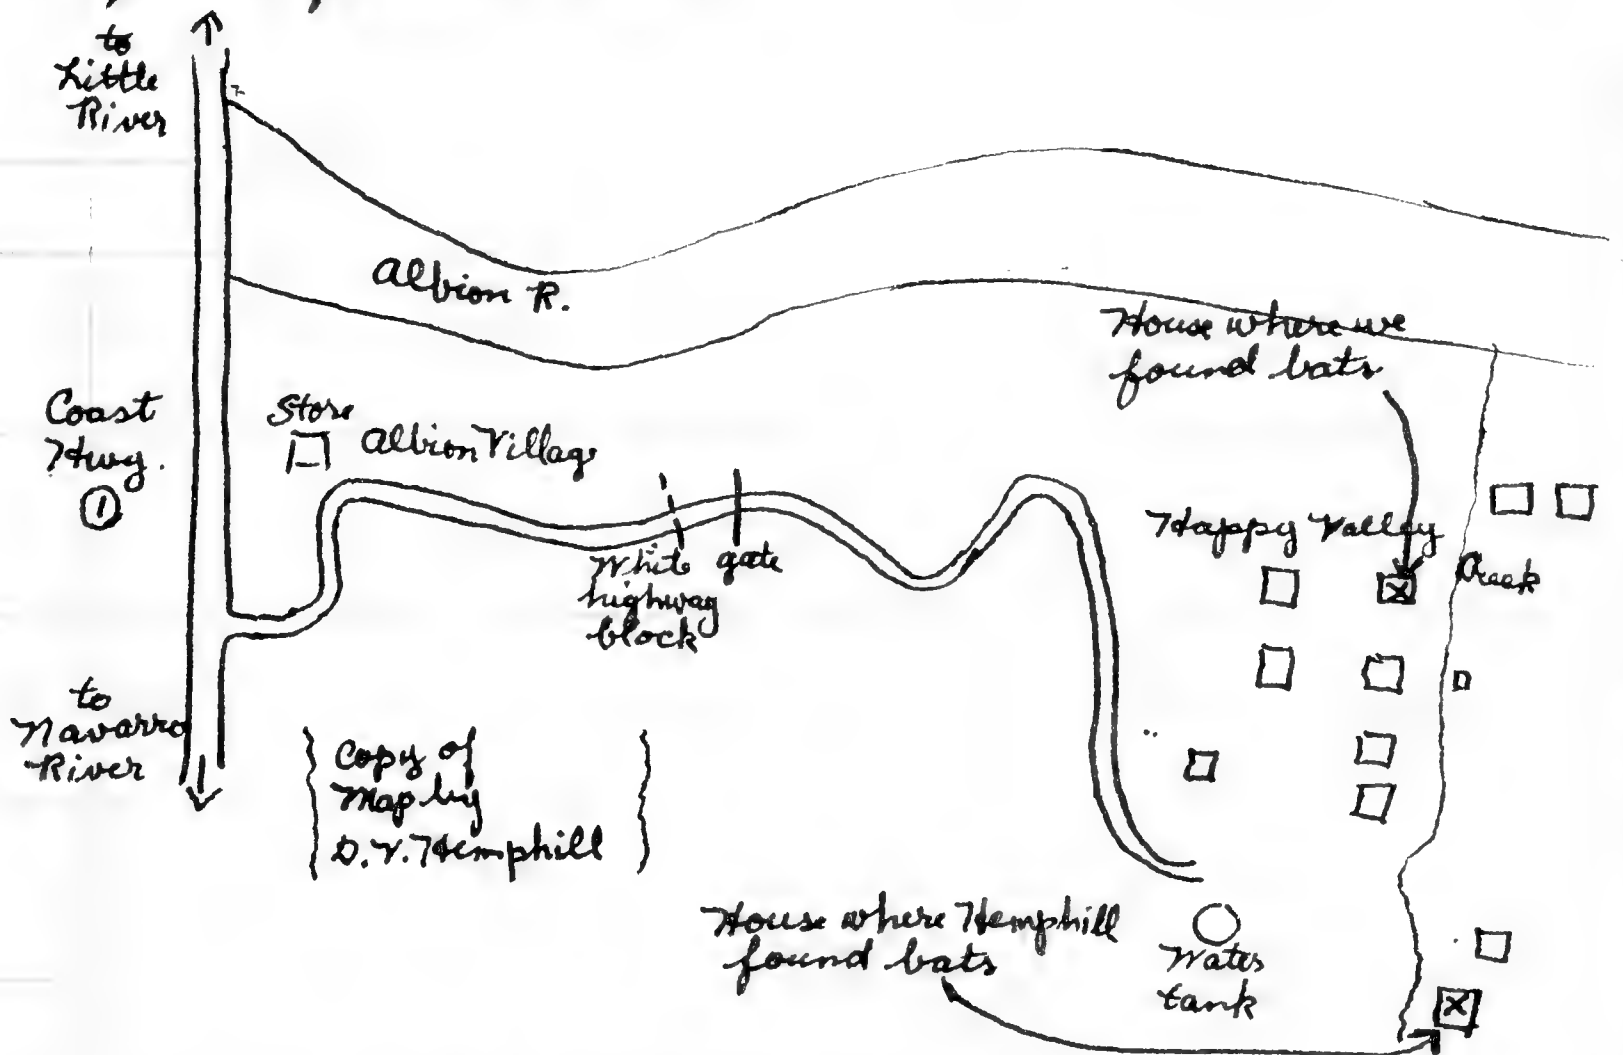 to
Little
River
Albion R.
House where we
found bats
Coast
Hwy.
1
Store
Albion Village
Happy Valley
Creek
White
highway
block
gate
to
Navarro
River
Copy of
Map by
D.V. Hemphill
House where Hemphill
found bats
Water
tank